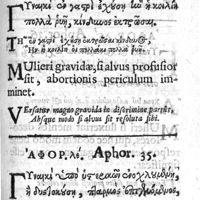 Γυναικὶ ἐν γαστρὶ ἐχούση ἢν ἡ κοιλίη
πολλὰ ῥυῇ, κίνδυνος ἐκτρῶσαι.
Τῇ ἐν γαστρὶ ἐχούσῃ
Ἢν ἡ κοιλίη οἱ πολλάκι πολλὰ ῥυῇ.
Mulieri gravidæ, si alvus profusior
sit, abortionis periculum im-
minet.
Venter magno gravida in discrimine partus,
Absque modo si alvus sit resoluta sibi.
ΑΦΟΡ. λέ. Aphor. 35.
Γυναικὶ ὑπὸ ὑστερικῶν ἐνοχλουμένῃ,
ἢ δυστοκούσῃ, πταρμὸς